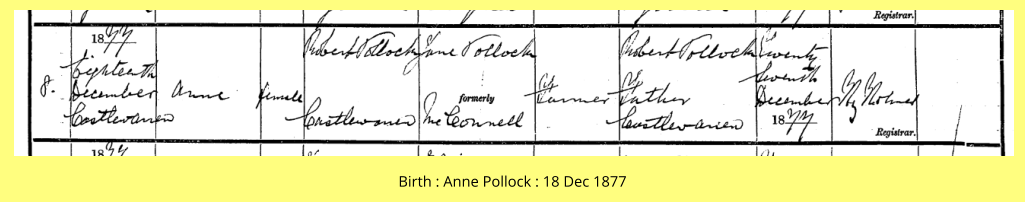 Registrar.
8.
1877
Eighteenth
December
Castlewarren
Anne
Female
Robert Pollock
Castlewarren
Jane Pollock
formerly
McConnell
Farmer
Robert Pollock
Father
Castlewarren
Twenty
Seventh
December
1877
Registrar.
1877
Birth : Anne Pollock : 18 Dec 1877